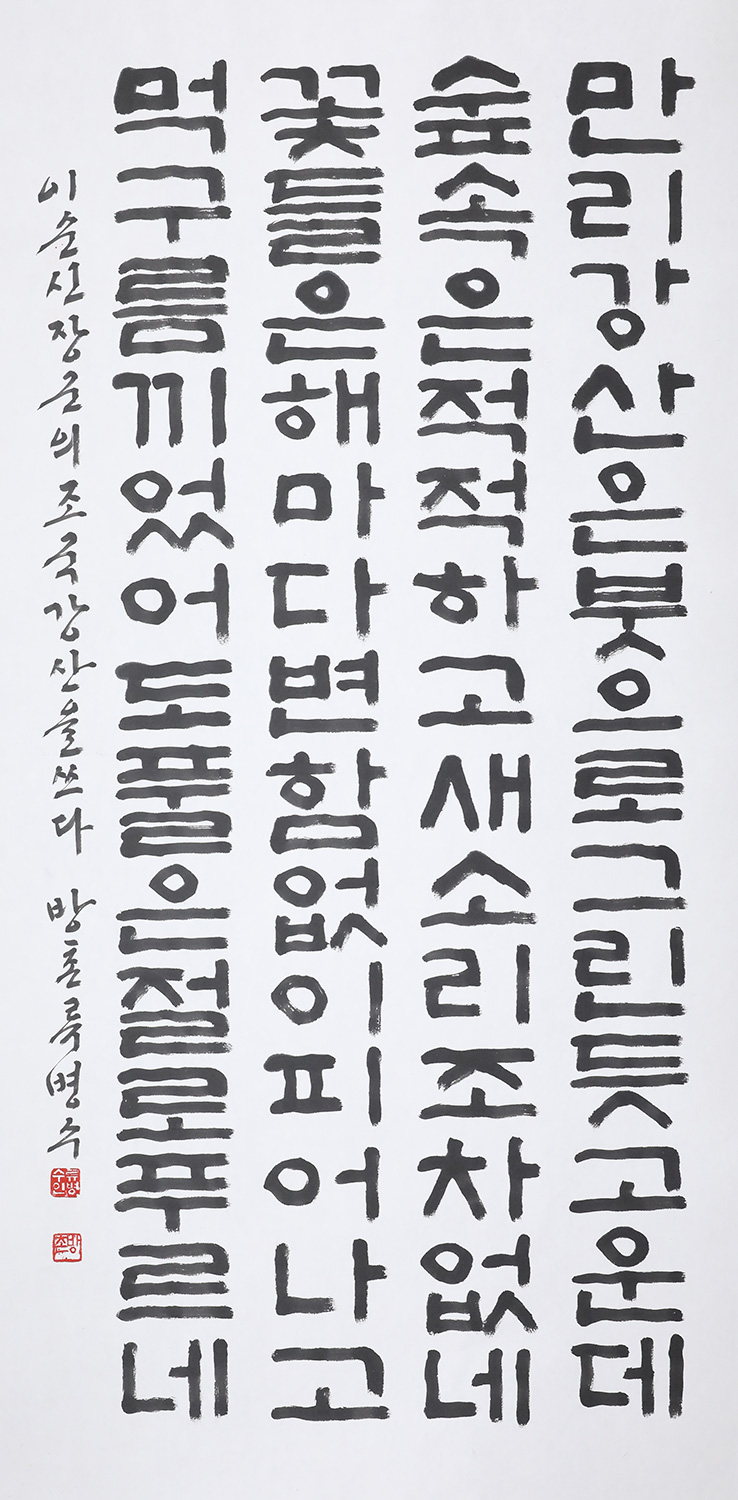 만리강산은붓으로그린듯고운데
숲속은적적하고새소리조차없네
꽃들은해마다변함없이피어나고
먹구름끼었어도풀은절로푸르네
이순신장군의조국강산을쓰다 방촌류병수
류병수인
방촌